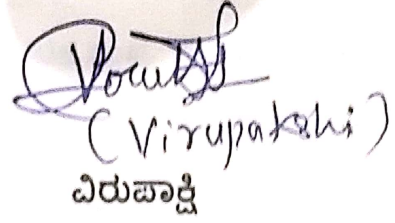 (Virupakshi)
ವಿರುಪಾಕ್ಷಿ